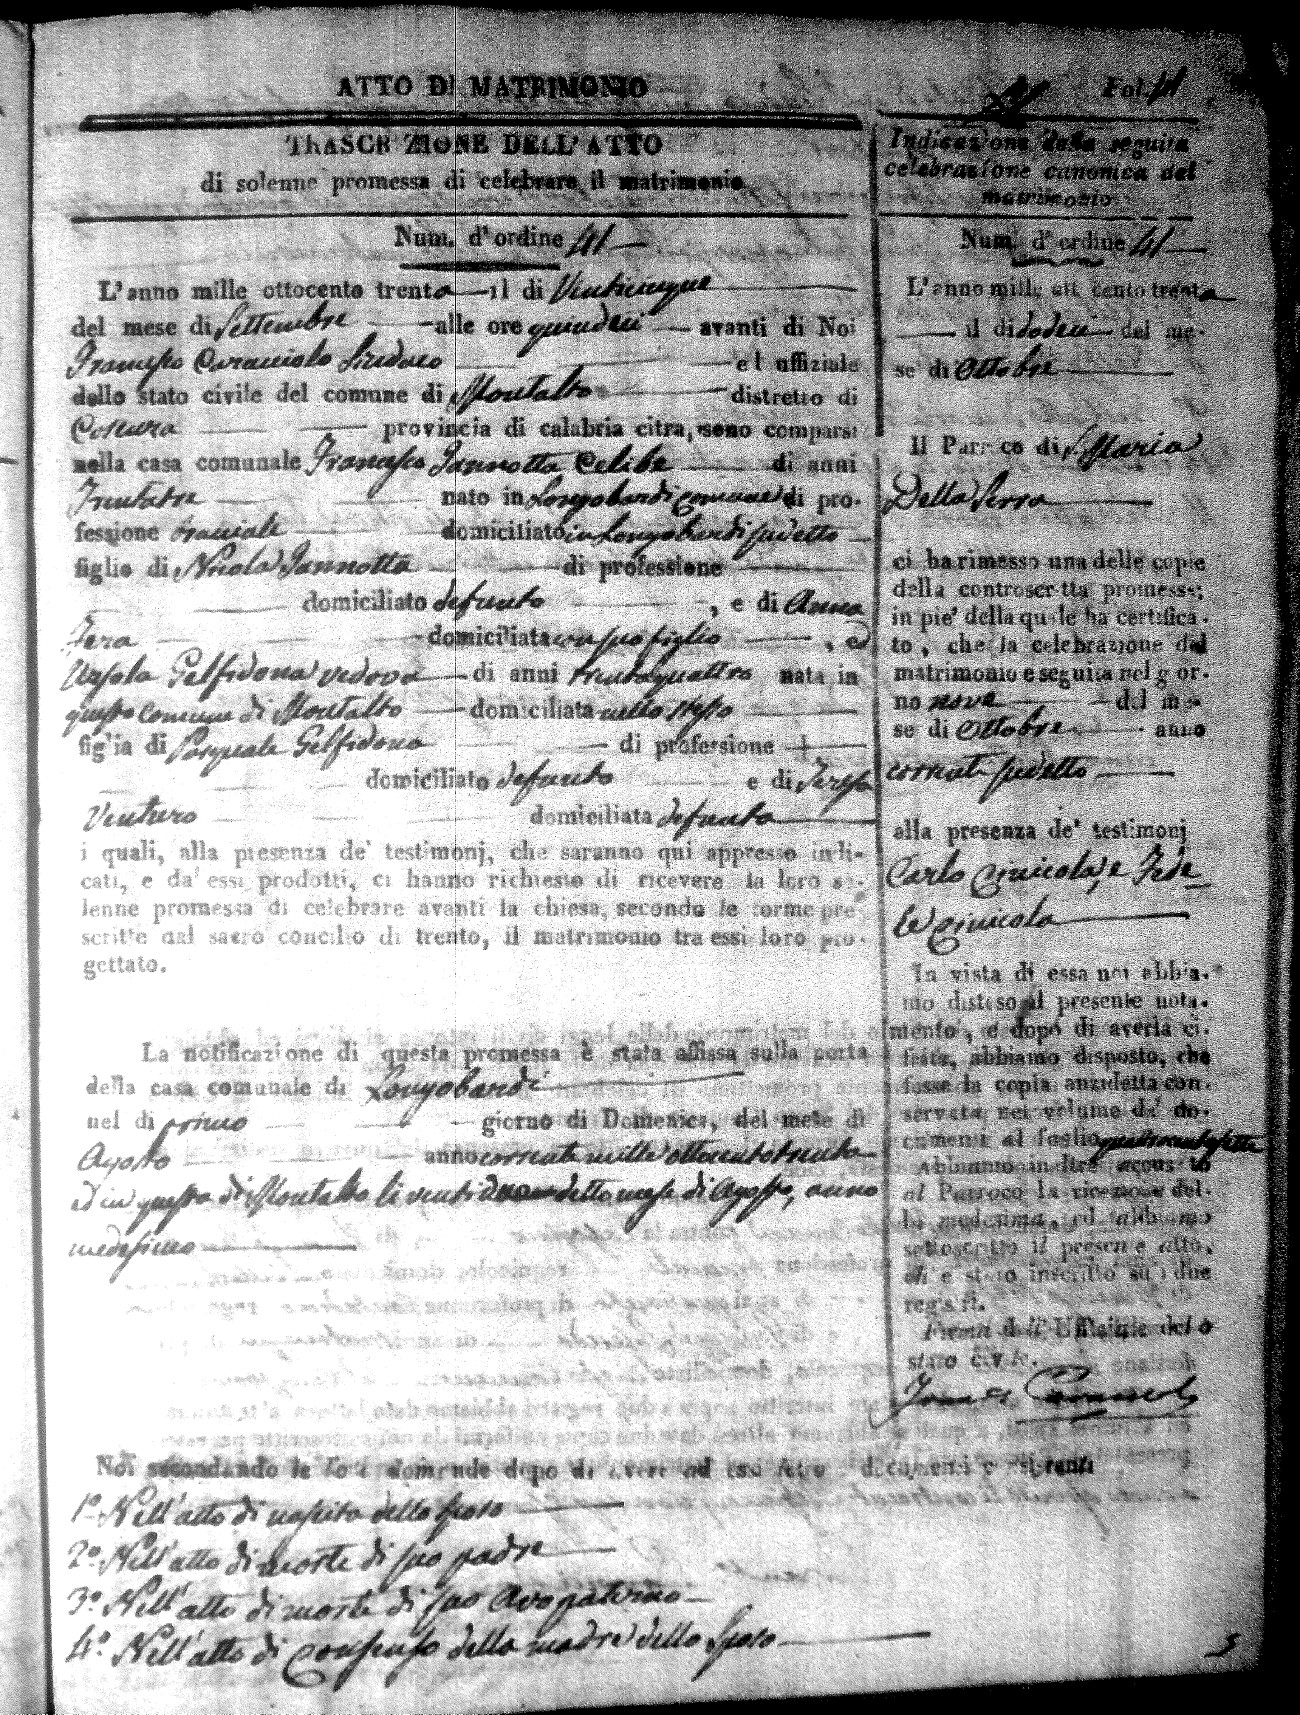 ATTO DI MATRIMONIO
Fol. 41
TRASCRIZIONE DELL' ATTO
di solenne promessa di celebrare il matrimonio
Num. d' ordine 41
L' anno mille ottocento trenta il di Venticinque
del mese di Settembre alle ore quindeci avanti di Noi
Francesco Caracciolo Sindaco ed uffiziale
dello stato civile del comune di Montalto distretto di
Cosenza provincia di calabria citra, sono comparsi
nella casa comunale Francesco Jannotta Celibe di anni
Trentatre nato in Longobardi comune di pro-
fessione bracciale domiciliato in Longobardi sudetto
figlio di Nicola Jannotta di professione
domiciliato defunto , e di Anna
domiciliata con suo figlio , ed
Ursola Gelfidona vedova di anni trentaquattro nata in
questo comune di Montalto domiciliata nello stesso
figlia di Pasquale Gelfidona di professione
domiciliato defunto e di Teresa
Venturo domiciliata defunta
i quali, alla presenza de' testimonj, che saranno qui appresso indi-
cati, e da' essi prodotti, ci hanno richiesto di ricevere la loro so-
lenne promessa di celebrare avanti la chiesa, secondo le forme pre
scritte dal sacro concilio di trento, il matrimonio tra essi loro pro-
gettato.
La notificazione di questa promessa è stata affissa sulla porta
della casa comunale di Longobardi
nel di primo giorno di Domenica, del mese di
Agosto anno corrente mille ottocentotrenta
ed in questa di Montalto li venti detto mese di Agosto, anno
medesimo
Noi secondando le loro domande dopo di avere ad essi letto i documenti consistenti
1.º Nell' atto di nascita dello sposo
2.º Nell' atto di morte di suo padre
3.º Nell' atto di morte di suo Avo paterno
4.º Nell' atto di consenso della madre dello sposo
Indicazione della seguita
celebrazione canonica del
matrimonio
Num. d' ordine 41
L' anno mille ott cento trenta
il di dodeci del me-
se di Ottobre
Il Parroco di S. Maria
Della Serra
ci ha rimesso una delle copie
della controscritta promessa;
in piè della quale ha certifica-
to, che la celebrazione del
matrimonio e seguita nel gior-
no nove del me
se di Ottobre anno
corrente sudetto
alla presenza de' testimonj
Carlo Cinicola, e Fede
le Cinicola
In vista di essa noi abbia-
mo disteso il presente nota-
mento, e dopo di averla ci-
frata, abbiamo disposto, che
fosse la copia anzidetta con-
servata nel volume de' do-
cumenti al foglio
Abbiamo inoltre accusato
al Parroco la ricezione del-
la medesima, ed abbiamo
sottoscritto il presente atto,
ch' e stato inscritto su i due
registri.
Firma dell' Uffiziale dello
stato civile.